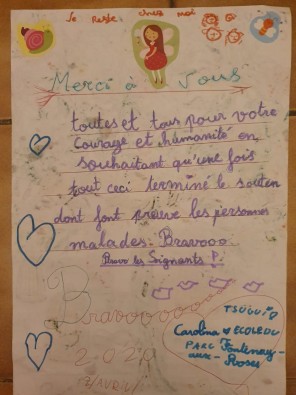 Je Reste chez moi
Merci à Vous
toutes et tous pour votre
courage et humanité en
souhaitant qu'une fois
tout ceci terminé le soutien
dont font preuve les personnes
malades. Bravooo.
Bravo les Soignants
Bravoooooooo
2020
TSUGUIO
Carolina ECOLE DU
PARC Fontenay-
aux-Roses
17/AVRIL/